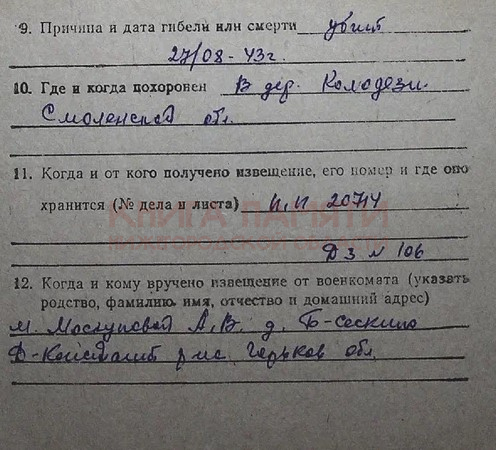 9. Причина и дата гибели или смерти убит
27/08-43г.
10. Где и когда похоронен В дер. Колодези
Смоленской обл
11. Когда и от кого получено извещение, его номер и где оно
хранится (№ дела и листа) 20714
КНИГА ПАМЯТИ
НИЖЕГОРОДСКОЙ ОБЛАСТИ
Д 3 N 106
12. Когда и кому вручено извещение от военкомата (указать
родство, фамилию, имя, отчество и домашний адрес)
м. А, В. д. Б-Сескино
Д-Константин р-на Горьков обл.